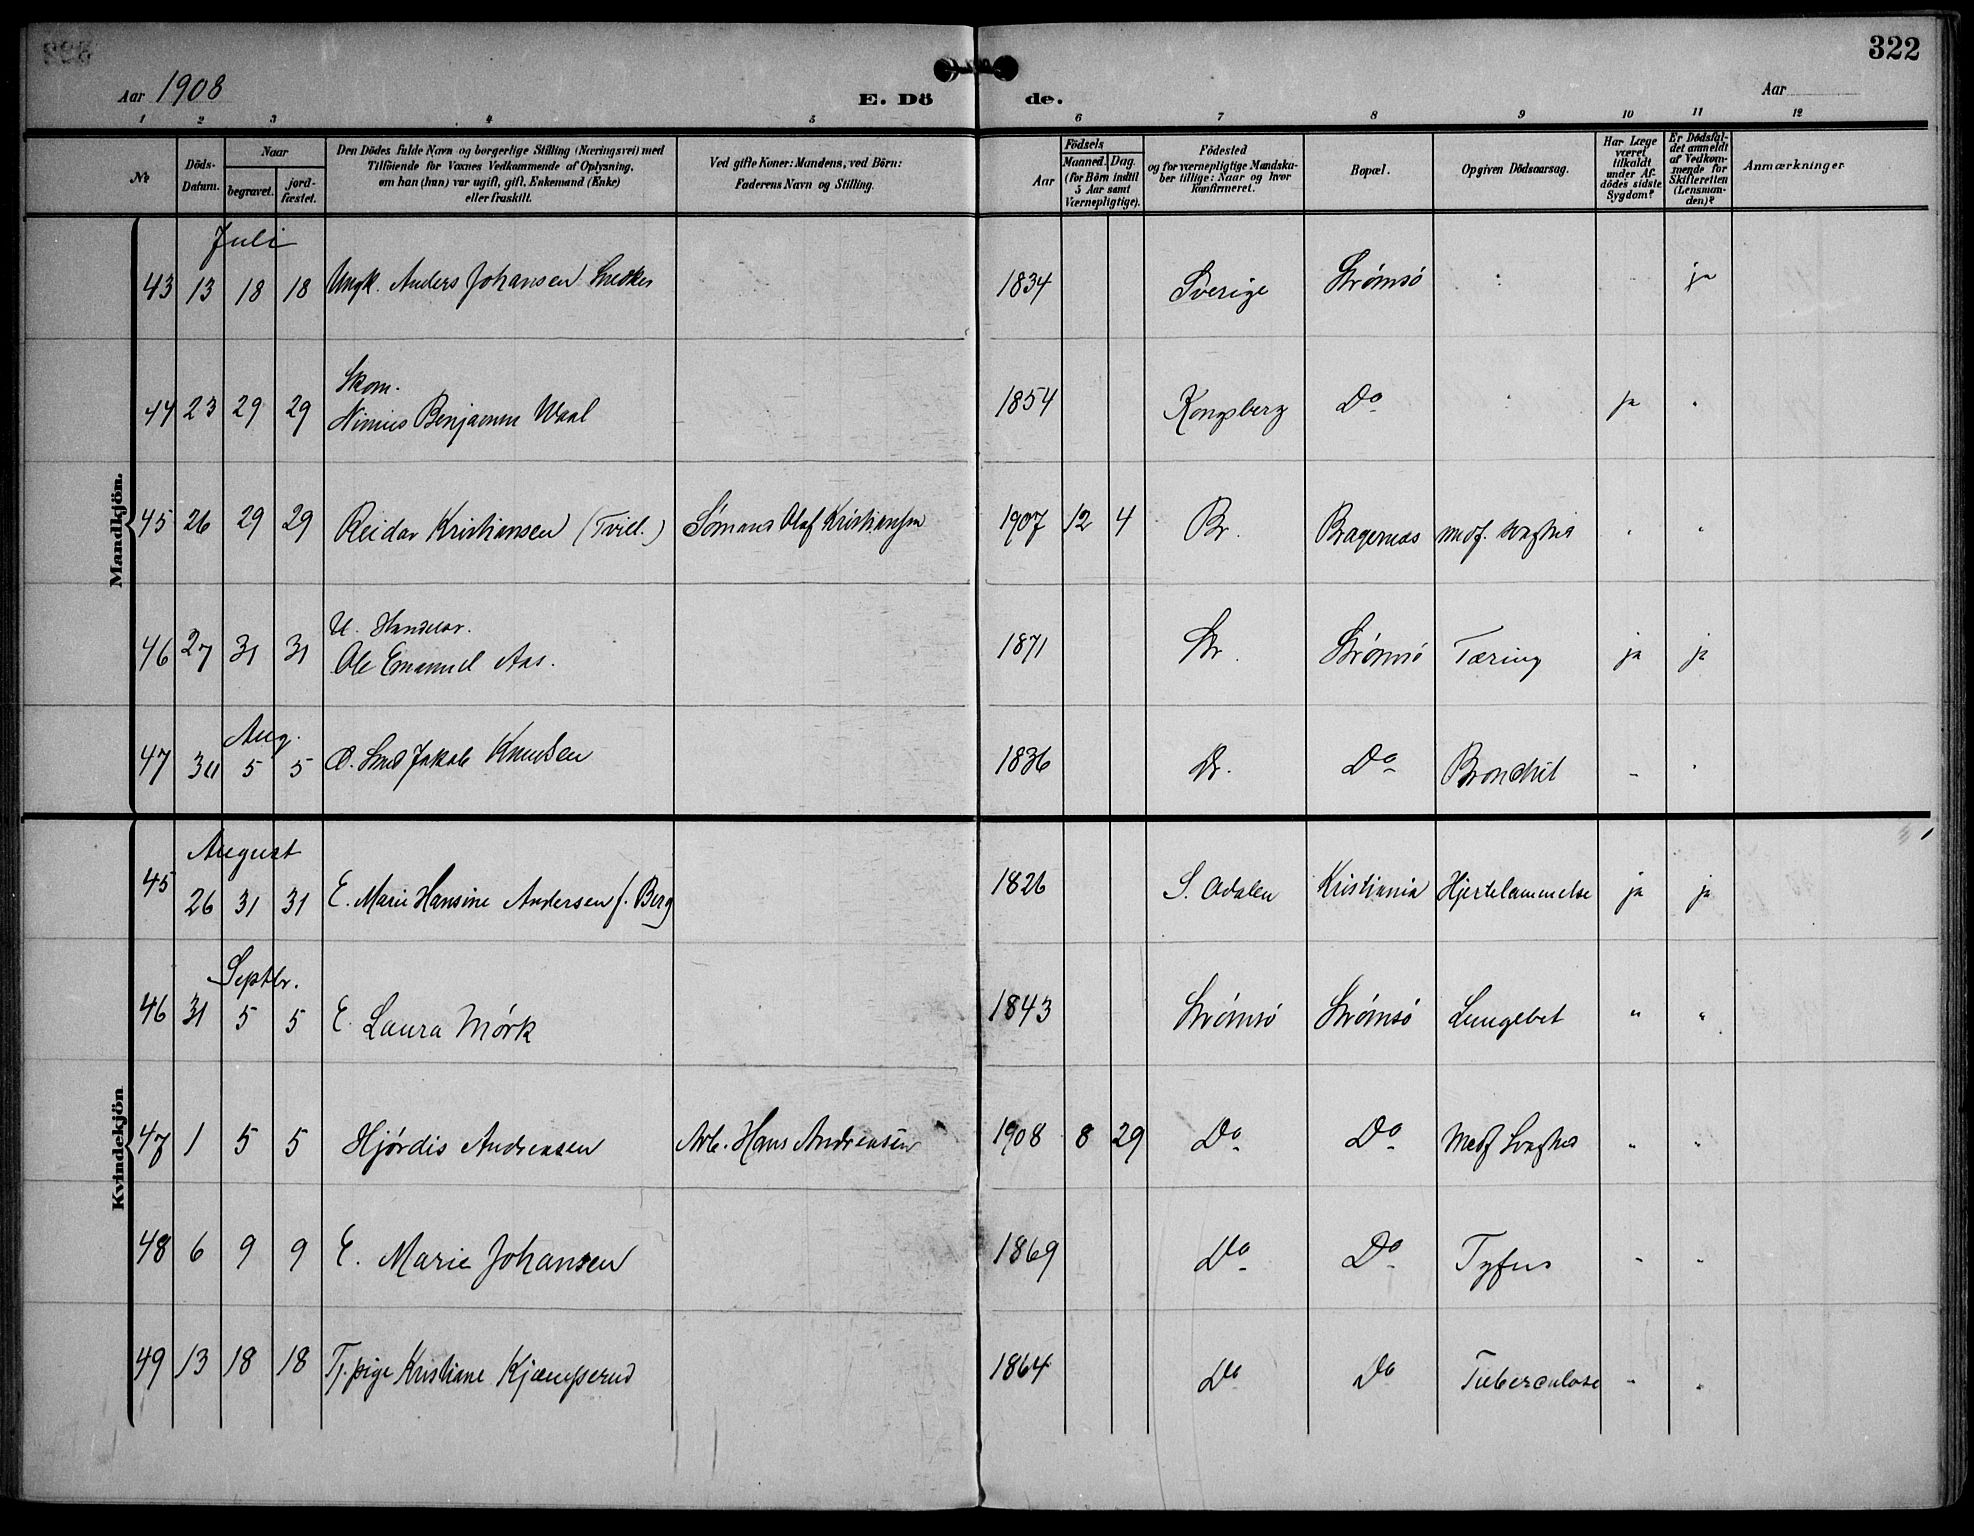 322
Aar 1908
E. Dö de.
Aar
1 2 3 4 5 6 7 8 9 10 11 12
No
Döds-Datum.
Naar
begravet.
jord-fæstet.
Den Dödes fulde Navn og borgerlige Stilling (Næringsvei) med
Tilföiende for Voxnes Vedkommende af Oplysning,
om han (hun) var ugift, gift, Enkemand (Enke)
eller fraskilt.
Ved gifte Koner: Mandens, ved Börn:
Faderens Navn og Stilling.
Födsels
Aar
Maaned. Dag.
(for Börn indtil
5 Aar samt
Værnepligtige).
Födested
og for værnepligtige Mandska-
ber tillige: Naar og hvor
konfirmeret.
Bopæl.
Opgiven Dödsaarsag.
Har Læge
været
tilkaldt
under Af-
dödes sidste
Sygdom?
Er Dödsfal-
det anmeldt
af Vedkom-
mende for
Skifteretten
(Lensman-
den)?
Anmærkninger.
Mandkjön.
Juli
43 13 18 18 Ungk. Anders Johansen Snedker 1834 Sverige Strømsö " " ja
Skom.
44 23 29 29 Benjamin Waal 1854 Kongsberg Do " ja "
45 26 29 29 Reidar Kristiansen (Tvill.) Sømand Olaf Kristiansen 1907 12 4 Br. Bragernæs medf. svaghed " "
U. Handelsr.
46 27 31 31 Ole Emanuel Aas. 1871 Str. Strømsö Tæring ja ja
Aug.
47 30 5 5 Smed Jakob Knudsen 1836 Dr. Do Bronchit " "
Kvindekjön
August
45 26 31 31 E. Marie Hansine Andersen f. Berg 1826 S. Odalen Kristiania Hjertelammelse ja ja
Septbr.
46 31 5 5 E. Laura Mørk 1843 Strømsö Strømsö Lungebet " "
47 1 5 5 Hjørdis Andreasen Arb. Hans Andreasen 1908 8 29 Do Do Medf Svaghed " "
48 6 9 9 E. Marie Johansen 1869 Do Do Tyfus " "
49 13 18 18 Tj.pige Kristiane Kjæmperud 1864 Do Do Tuberculose " "